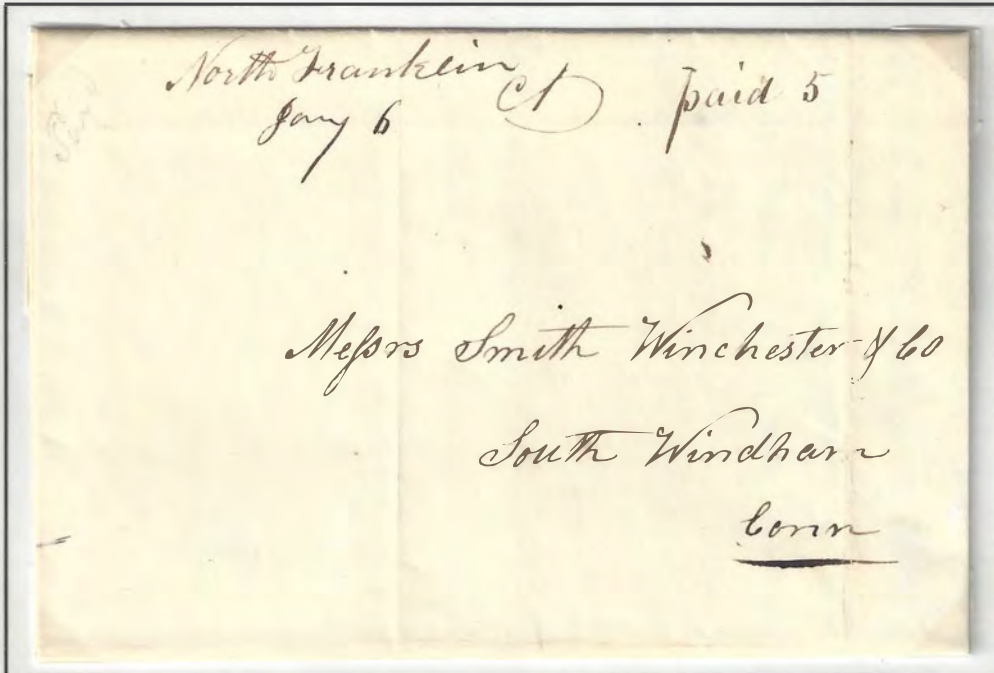 North Franklin Ct paid 5
Jany 6
Messrs Smith Winchester & Co
South Windham
Conn